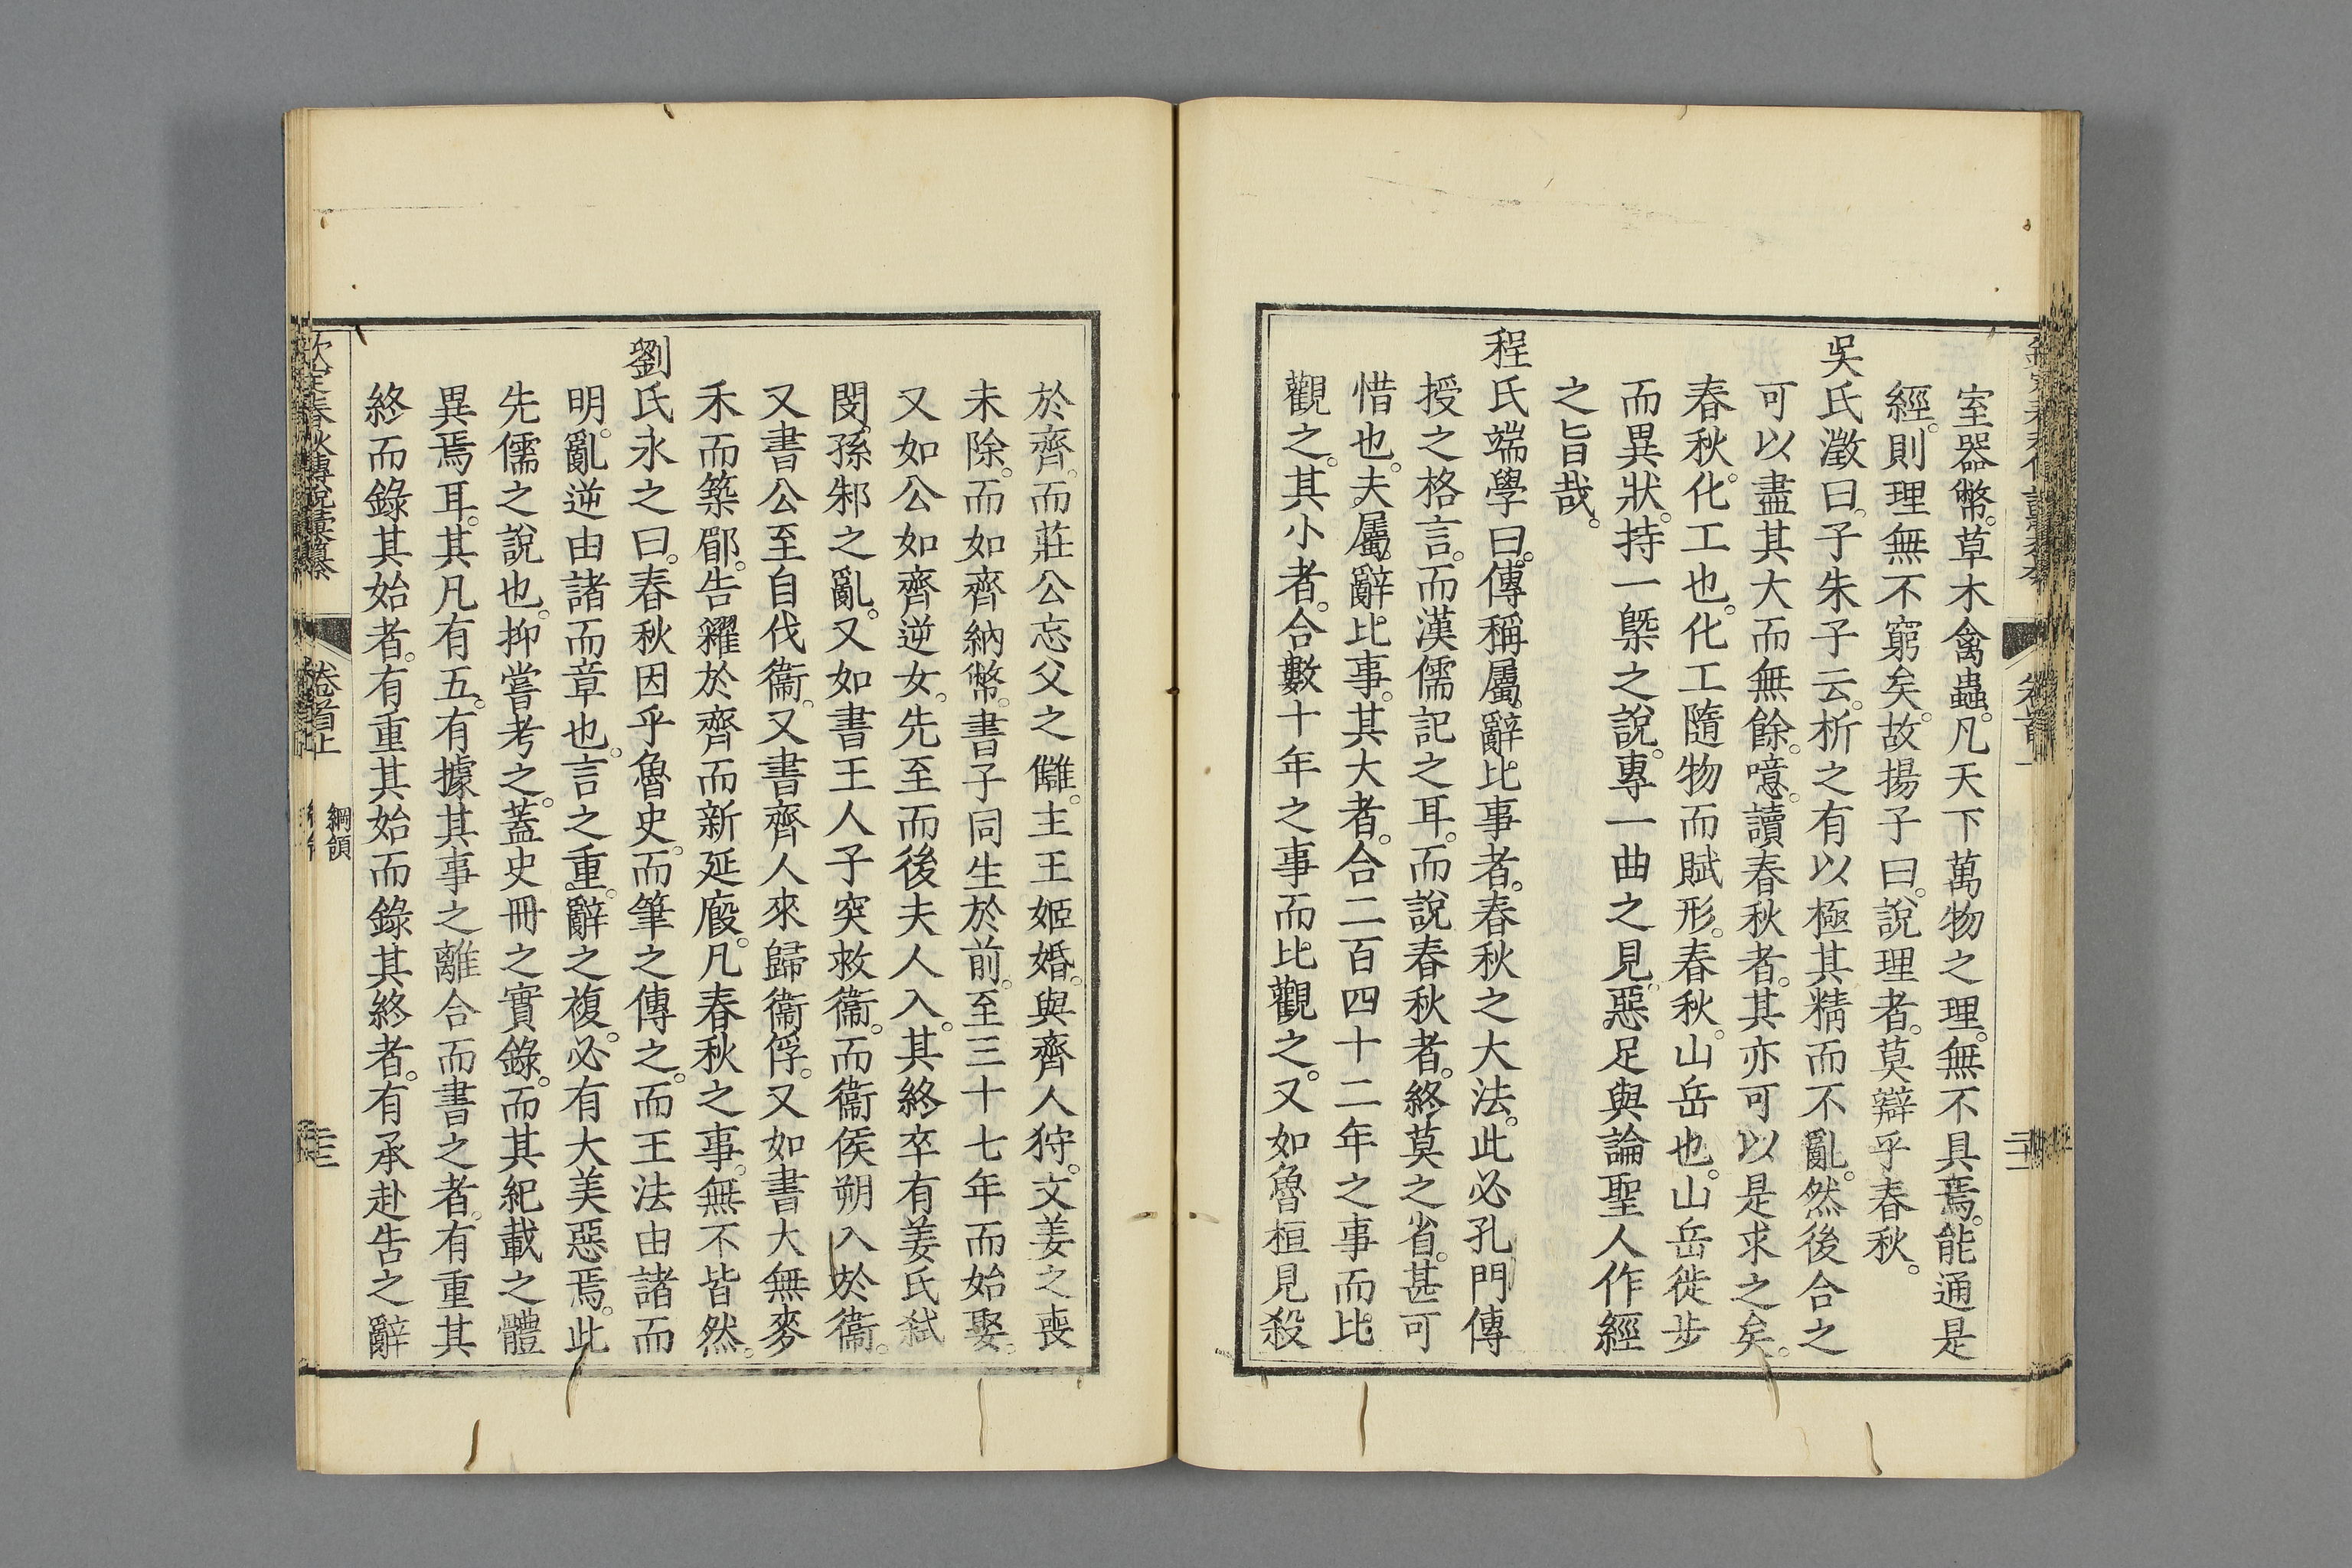 室器幣。草木禽蟲。凡天下萬物之理。無不具焉。能通是
經。則理無不窮矣。故揚子曰。說理者。莫辯乎春秋。
吳氏澂曰。子朱子云。析之有以極其精而不亂。然後合之
可以盡其大而無餘。噫。讀春秋者。其亦可以是求之矣。
春秋。化工也。化工隨物而賦形。春秋。山岳也。山岳徙步
而異狀。持一槩之說。專一曲之見。惡足與論聖人作經
之旨哉。
程氏端學曰。傳稱屬辭比事者。春秋之大法。此必孔門傳
授之格言。而漢儒記之耳。而說春秋者。終莫之省。甚可
惜也。夫屬辭比事。其大者。合二百四十二年之事而比
觀之。其小者。合數十年之事而比觀之。又如魯桓見殺
於齊。而莊公忘父之讎。主王姬婚。與齊人狩。文姜之喪
未除。而如齊納幣。書子同生於前。至三十七年而始娶。
又如公如齊逆女。先至而後夫人入。其終卒有姜氏弑
閔。孫邾之亂。又如書王人子突救衞。而衞侯朔入於衞。
又書公至自伐衞。又書齊人來歸衞俘。又如書大無麥
禾而築郿。告糴於齊而新延廄。凡春秋之事。無不皆然。
劉氏永之曰。春秋因乎魯史。而筆之傳之。而王法由諸而
明。亂逆由諸而章也。言之重。辭之複。必有大美惡焉。此
先儒之說也。抑嘗考之。蓋史冊之實錄。而其紀載之體
異焉耳。其凡有五。有據其事之離合而書之者。有重其
終而錄其始者。有重其始而錄其終者。有承赴告之辭
欽定春秋傳說彙纂 卷首上 綱領